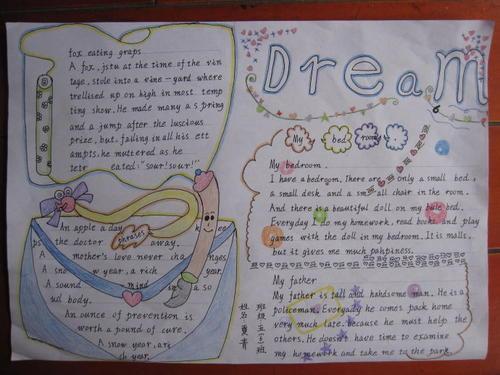 fox eating graps
A fox, jstu at the time of the vin
tage, stole into a vine-yard where
trellised up on high in most temp
ting show. He made many a spring
and a jump after the luscious
prize, but, failing in all his ett
ampts, he muttered as he
retr eated: "sour! sour!"
phrases
An apple a day k ee
ps the doctor away.
A mother's love never cha nges.
A snow year, a rich year.
A sound mind in a so
ud body.
An ounce of prevention is
worth a pound of cure.
A snow year, a rich
ch year.
Dream
My bed room
My bedroom.
I have a bedroom. There are only a small bed,
a small desk and a small chair in the room.
And there is a beautiful doll on my bule bed.
Everyday I do my homework, read books and play
games with the doll in my bedroom. It is malls,
but it gives me much pahpiness.
My father
My father is tall and handsome man. He is a
policeman. Everyday he comes pack home
very much late. because he must help the
others. He doesn't have time to examine
my homework and take me to the park.
班级 五(3)班
姓名